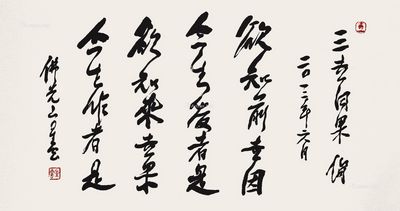 三世因果偈
二〇一三年六月
欲知前世因
今生受者是
欲知來世果
今生作者是
佛光山星雲